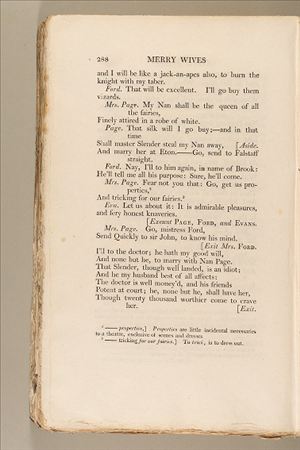 288 MERRY WIVES
and I will be like a jack-an-apes also, to burn the
knight with my taber.
Ford. That will be excellent. I'll go buy them
vizards.
Mrs. Page. My Nan shall be the queen of all
the fairies,
Finely attired in a robe of white.
Page. That silk will I go buy;—and in that
time
Shall master Slender steal my Nan away, [Aside.
And marry her at Eton.——Go, send to Falstaff
straight.
Ford. Nay, I'll to him again, in name of Brook:
He'll tell me all his purpose: Sure, he'll come.
Mrs. Page. Fear not you that: Go, get us pro-
perties,⁸
And tricking for our fairies.⁹
Eva. Let us about it: It is admirable pleasures,
and fery honest knaveries.
[Exeunt PAGE, FORD, and EVANS.
Mrs. Page. Go, mistress Ford,
Send Quickly to sir John, to know his mind.
[Exit Mrs. FORD.
I'll to the doctor; he hath my good will,
And none but he, to marry with Nan Page.
That Slender, though well landed, is an idiot;
And he my husband best of all affects:
The doctor is well money'd, and his friends
Potent at court; he, none but he, shall have her,
Though twenty thousand worthier come to crave
her. [Exit.
—— properties,] Properties are little incidental necessaries
to a theatre, exclusive of scenes and dresses
—— tricking for our fairies.] To trick, is to dress out.